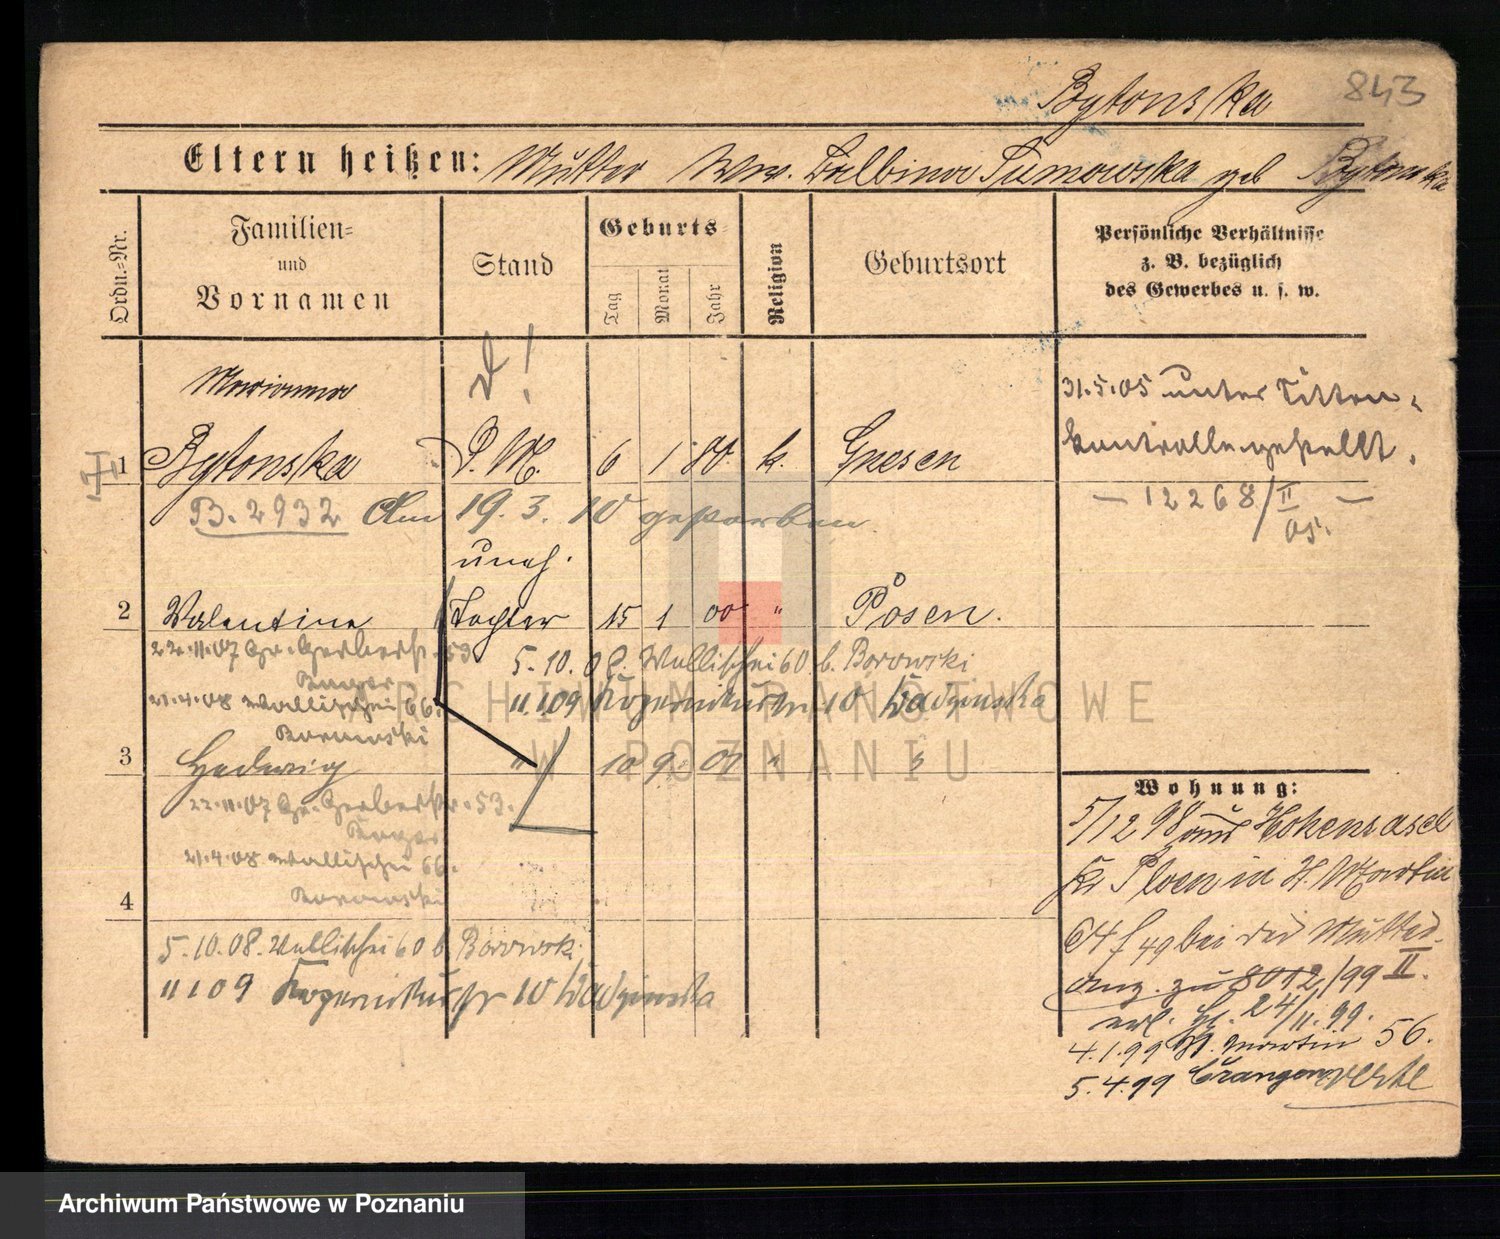 Bytonska
843
Eltern heißen: Mutter Ww. Balbina Tumowska geb Bytonska
Ordn.=Nr.
Familien=
und
Vornamen
Stand
Geburts
Tag
Monat
Jahr
Religion
Geburtsort
Persönliche Verhältnisse
z. B. bezüglich
des Gewerbes u. s. w.
Marianna
1 Bytonska P. M. 6 1 80. k. Gnesen
31.5.05 unter Sitten-
kontrolle gestellt.
— 12268/II 05. —
B. 2932 Am 19. 3. 10 gestorben
uneh.
2 Valentine Tochter 15 1 00 " Posen.
22.11.07 Gr. Gerberstr. 53
21.4.08 Wallischei 66.
Borowski
5. 10. 08. Wallischei 60 b. Borowski
11.1.09 10
3 Hedwig " 10 9. "
22.11.07 Gr. Gerberstr. 53.
21.4.08 Wallischei 66.
Borowski
4
5. 10. 08. Wallischei 60 b. Borowski
11 1 09 10
Wohnung:
5/12 98 aus
Kr Ploen in St. Martin
64 bei der Mutter.
ang. zu 8012/99 II.
erl. 24/11. 99.
4. 1. 99 St. Martin 56.
5. 4. 99
ARCHIWUM PAŃSTWOWE
W POZNANIU
Archiwum Państwowe w Poznaniu